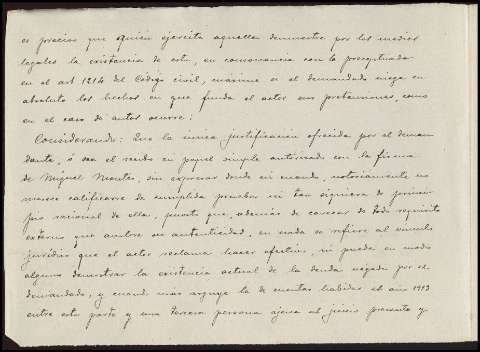 es preciso que quien ejercita aquella demuestre por los medios
legales la existencia de esta, en consonancia con lo preceptuado
en el art 1214 del Código civil, máxime si el demandado niega en
absoluto los hechos en que funda el actor sus pretensiones, como
en el caso de autos ocurre:
Considerando: Que la única justificación ofrecida por el deman
dante, ó sea el recibo en papel simple autorizado con la firma
de Miguel Montes, sin expresar donde ni cuando, notoriamente no
merece calificarse de cumplida prueba ni tan siquiera de principio
racional de ella, puesto que, además de carecer de todo requisito
externo que su autenticidad, en nada se refiere al vinculo
jurídico que el actor reclama hacer efectivo, ni puede en modo
alguno demostrar la existencia actual de la deuda negada por el
demandado, y cuando mas arguye la de cuentas habidas el año 1913
entre esta parte y una tercera persona ajena al juicio presente y